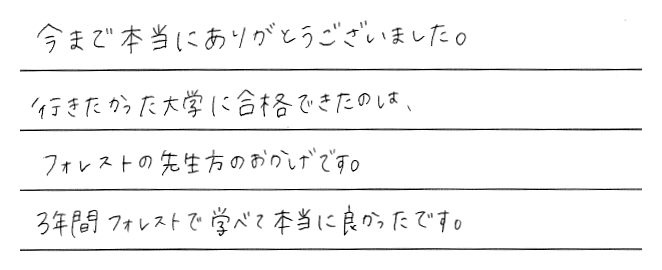 今まで本当にありがとうございました。
行きたかった大学に合格できたのは、
フォレストの先生方のおかげです。
3年間フォレストで学べて本当に良かったです。